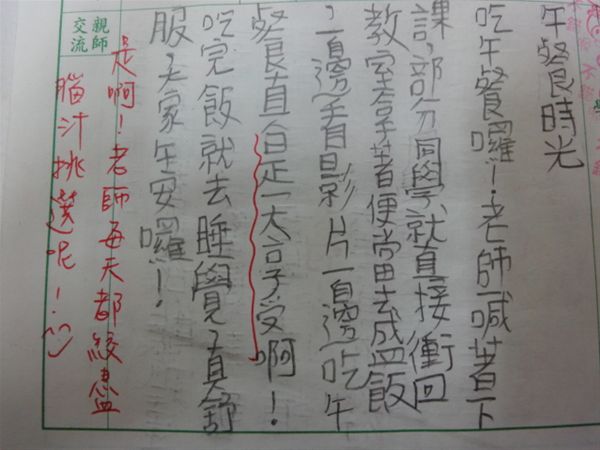 午餐時光
吃午餐囉！老師喊著下
課，部分同學就直接衝回
教室拿著便當去盛飯
，一邊看影片一邊吃午
餐真的是一大享受啊！
吃完飯就去睡覺，真舒
服，大家午安囉！
親師
交流
是啊！老師每天都絞盡
腦汁挑選呢！